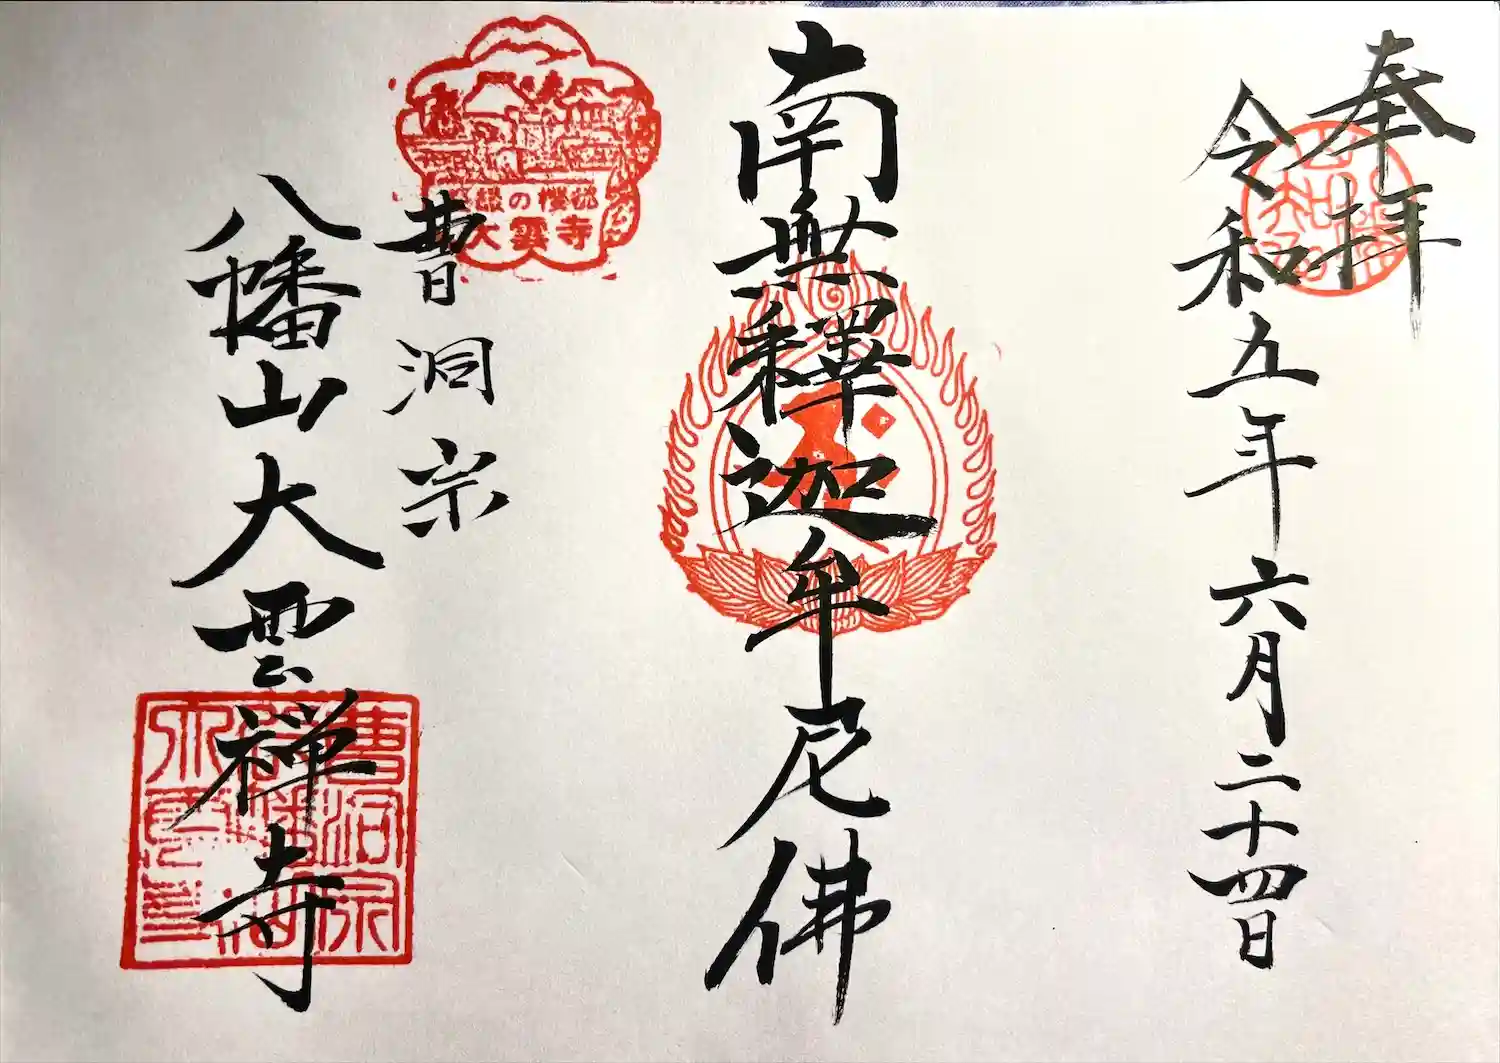 奉拝
令和五年六月二十四日
南無釋迦牟尼佛
曹洞宗
八幡山大雲禅寺
大雲寺